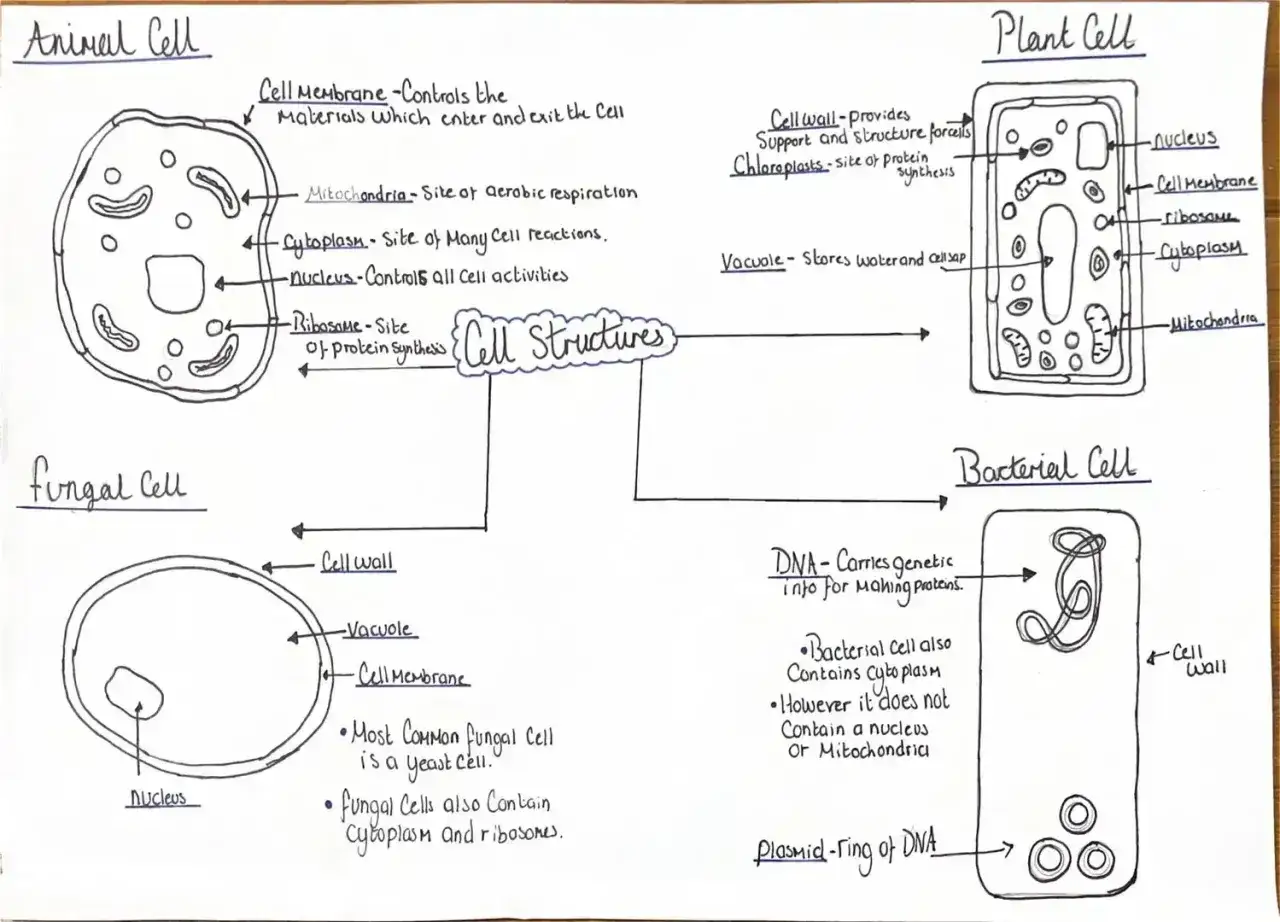 Animal Cell
Cell Membrane - Controls the
Materials which enter and exit the Cell
Mitochondria - Site of aerobic respiration
Cytoplasm - Site of Many Cell reactions.
nucleus - Controls all Cell activities
Ribosome - Site
of protein synthesis
Cell Structures
Plant Cell
Cell wall - provides
Support and structure for cells
Chloroplasts - site of protein
synthesis
Vacuole - Stores water and cell sap
nucleus
Cell Membrane
ribosome
Cytoplasm
Mitochondria
Fungal Cell
Cell wall
Vacuole
Cell Membrane
nucleus
• Most Common fungal Cell
is a yeast cell.
• Fungal Cells also Contain
cytoplasm and ribosomes.
Bacterial Cell
DNA - Carries genetic
info for Making proteins.
• Bacterial cell also
Contains cytoplasm
• However it does not
Contain a nucleus
or Mitochondria
Cell
wall
Plasmid - ring of DNA